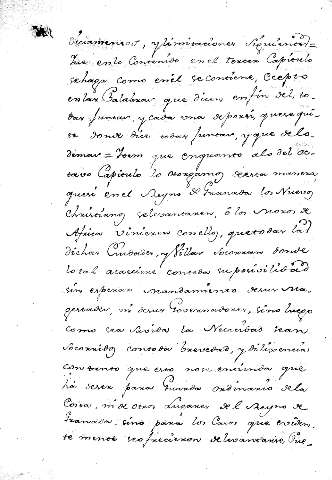 diciamentos, y limitaciones siguientes
Que en lo Contenido en el tercer Capitulo
se haga como en él se contiene, ecepto
en las Palabras que dicen en fin de to-
das juntas, y cada una de por sí, quese qui-
te donde dice todas juntas, y que de lo
demas = Item que en quanto a lo del oc-
tavo Capitulo lo otorgamos de esta manera
que si en el Reyno de Granada los Nuevos
Christianos se levantaren, ó los Moros de
Africa vinieren con ellos, que todas las
dichas Ciudades, y Villas socorran donde
lo tal acaeciere con toda su posivilidad
sin esperar mandamiento de sus Ma-
gestades, ni de sus Governadores, sino luego
como sea Savida la Necesidad sean
Socorridos con toda brevedad, y diligencia
con tento que esto no se entienda que
há de ser para Guarda ordinario de la
Costa, ni de otros Lugares del Reyno de
Granada, sino para los Casos que eviden-
te mente se ofrecieren de levantarse, Pue-